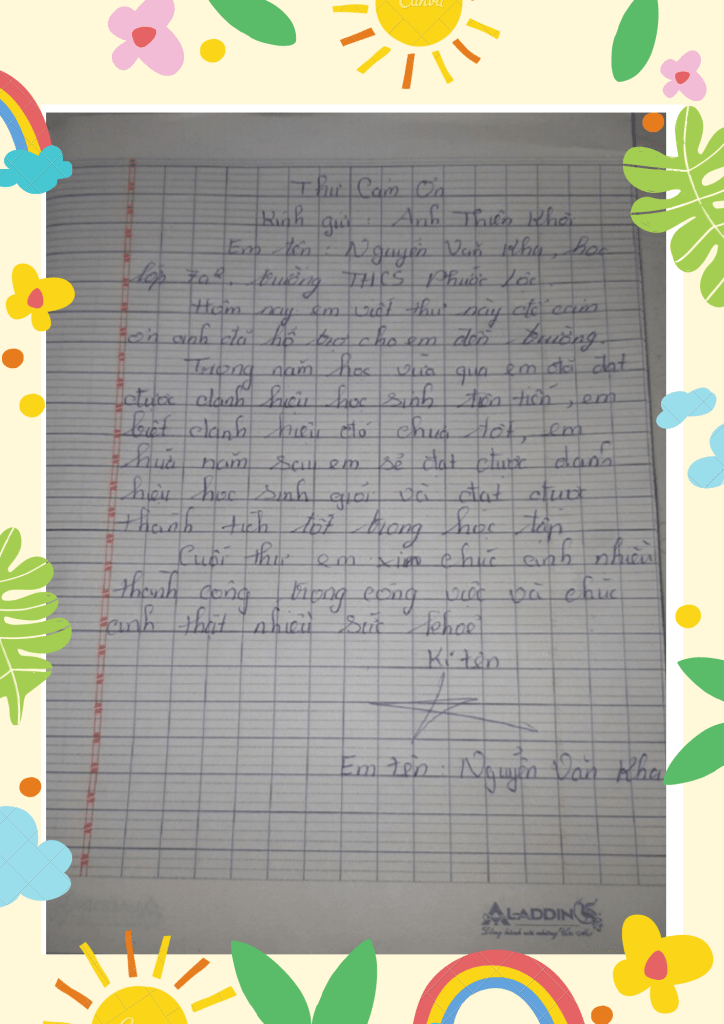 Canva
Thư Cảm Ơn
Kính gửi : Anh Thiên Khôi
Em tên : Nguyễn Văn Kha, học
lớp 7a2. trường THCS Phước Lộc.
Hôm nay em viết thư này để cảm
ơn anh đã hỗ trợ cho em đến trường.
Trong năm học vừa qua em đã đạt
được danh hiệu học sinh tiên tiến, em
biết danh hiệu đó chưa tốt, em
hứa năm sau em sẽ đạt được danh
hiệu học sinh giỏi và đạt được
thành tích tốt trong học tập
Cuối thư em xin chúc anh nhiều
thành công trong công việc và chúc
anh thật nhiều sức khoẻ
Kí tên
Em tên : Nguyễn Văn Kha
ALADDIN